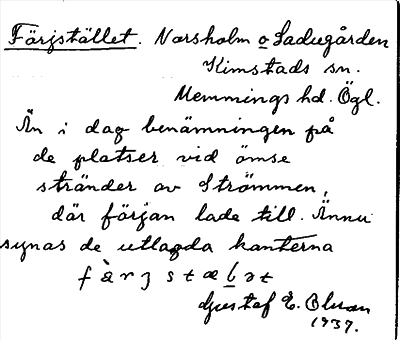 Färjstället. Norsholm o Ladugården
Kimstads sn.
Memmings hd. Ögl.
Än i dag benämningen på
de platser vid ömse
stränder av Strömmen,
där färjan lade till. Ännu
synas de utlagda kanterna
Gustaf E.
1937.